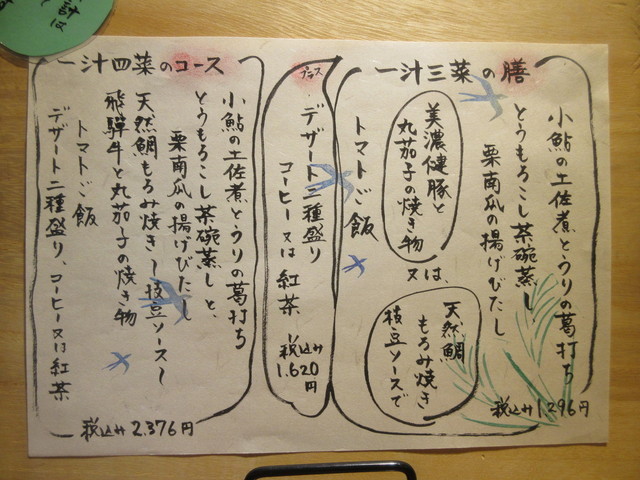 一汁三菜の膳
小鮎の土佐煮とうりの葛打ち
とうもろこし茶碗蒸し
栗南瓜の揚げびたし
美濃健豚と
丸茄子の焼き物
又は、
天然鯛
もろみ焼き
枝豆ソースで
トマトご飯
税込み1,296円
プラス
デザート二種盛り
コーヒー又は紅茶
税込み
1,620円
一汁四菜のコース
小鮎の土佐煮とうりの葛打ち
とうもろこし茶碗蒸しと、
栗南瓜の揚げびたし
天然鯛もろみ焼き〜枝豆ソース〜
飛騨牛と丸茄子の焼き物
トマトご飯
デザート二種盛り、コーヒー又は紅茶
税込み2,376円